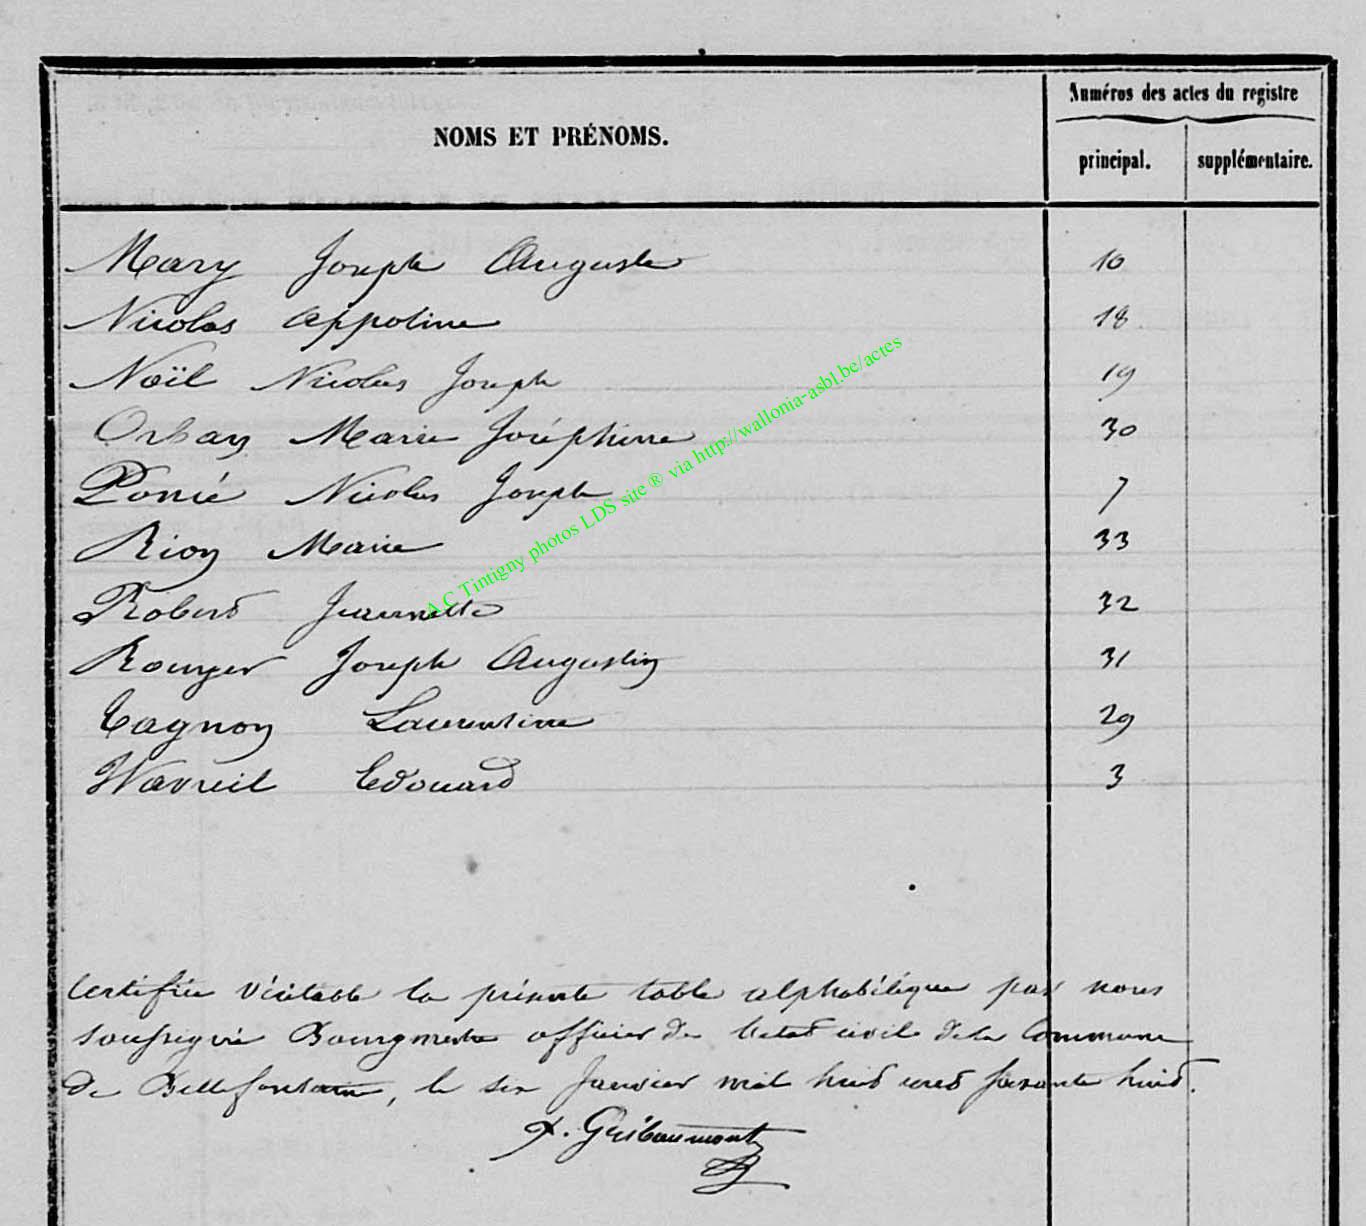 NOMS ET PRÉNOMS.
Numéros des actes du registre
principal.
supplémentaire.
Mary Joseph Auguste 10
Nicolas Appoline 18
Noël Nicolas Joseph 19
Orban Marie Joséphine 30
Poncé Nicolas Joseph 7
Rion Marie 33
Robert Jeannette 32
Rouyer Joseph Augustin 31
Tagnon Laurentine 29
Wavreil Edouard 3
A.C Tintigny photos LDS site ® via http://wallonia-asbl.be/actes
Certifiée véritable la présente table alphabétique par nous
soussigné Bourgmestre officier de l'etat civil de la Commune
de Bellefontaine, le six Janvier mil huit cent soixante huit.
Guibaumont